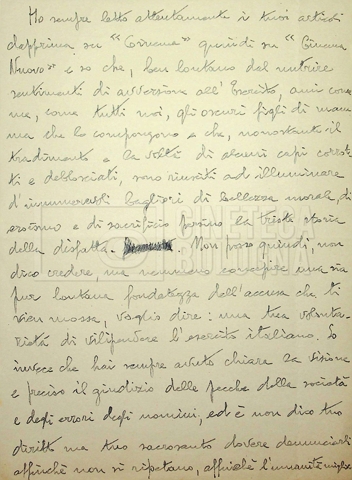 Ho sempre letto attentamente i tuoi articoli
dapprima su "Cinema" quindi su "Cinema
Nuovo" e so che, ben lontano dal nutrire
sentimenti di avversione all'Esercito, ami come
me, come tutti noi, gli oscuri figli di mam-
ma che lo compongono e che, nonostante il
tradimento e la viltà di alcuni capi corrot-
ti e debosciati, sono riusciti ad illuminare
d'innumerevoli bagliori di bellezza morale, di
eroismo e di sacrificio persino la triste storia
della disfatta. Non posso quindi, non
dico credere, ma nemmeno concepire una sia
pur lontana fondatezza dell'accusa che ti
vien mossa, voglio dire: una tua volonta-
rietà di vilipendere l'esercito italiano. So
invece che hai sempre avuto chiara la visione
e preciso il giudizio delle pecche della società
e degli errori degli uomini, ed è non dico tuo
diritto ma tuo sacrosanto dovere denunciarli
affinchè non si ripetano, affinchè l'umanità miglio-